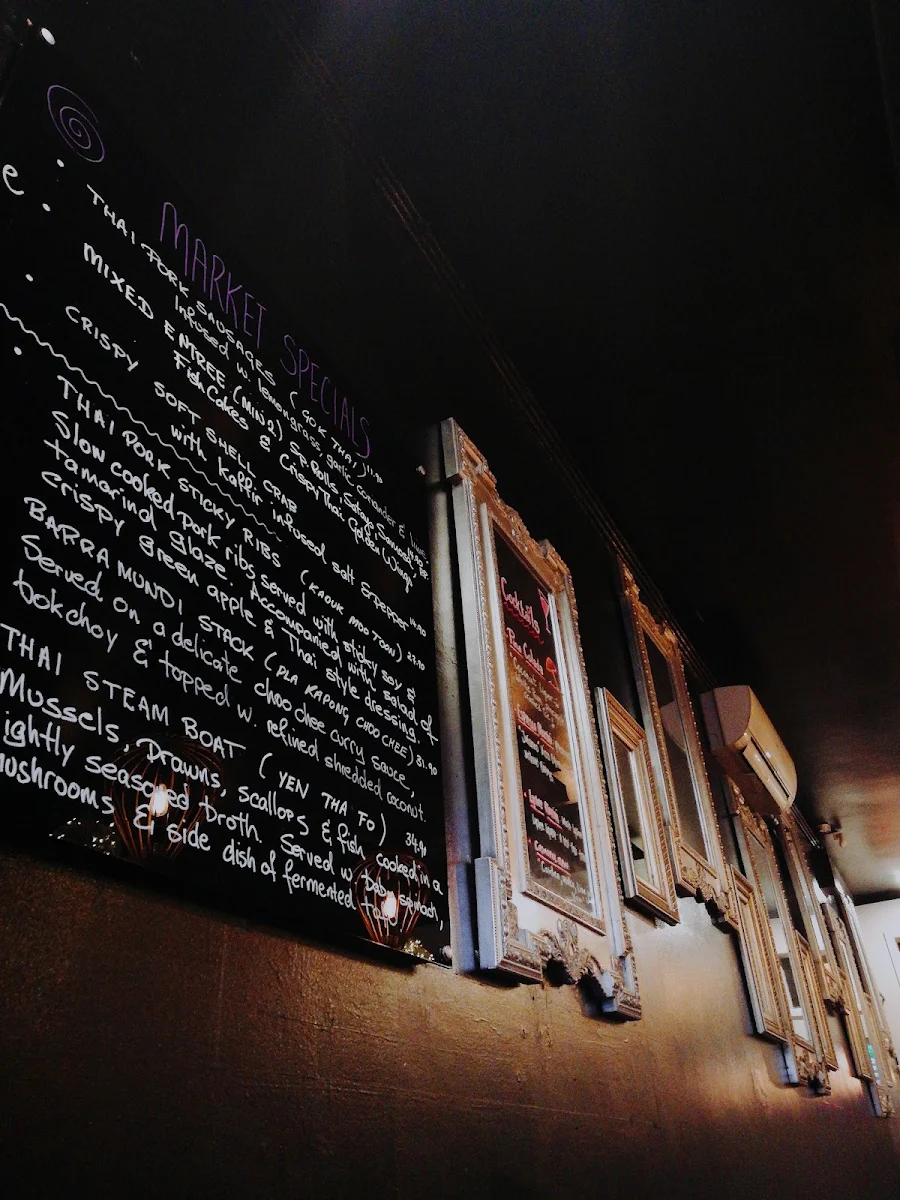 e
MARKET SPECIALS
THAI PORK SAUSAGES (GOK THAI)
Infused w. lemongrass, garlic, coriander &
MIXED ENTREE (Min 2) Sp. Rolls, Satay, Samosa,
Fish Cakes & Crispy Thai Golden Wings
CRISPY SOFT SHELL CRAB
with kaffir infused salt & pepper
THAI PORK STICKY RIBS (KAOUK MOO TOON) 29.90
Slow cooked pork ribs served with sticky soy &
tamarind glaze. Accompanied with salad of
crispy green apple & Thai style dressing.
BARRAMUNDI STACK (PLA KAPONG CHOO CHEE) 31.90
Served on a delicate choo chee curry sauce,
bokchoy & topped w. refined shredded coconut.
THAI STEAM BOAT (YEN THA FO) 34.90
Mussels, Prawns, scallops & fish cooked in a
ightly seasoned broth. Served w. baby spinach,
mushrooms & side dish of fermented
Cocktails